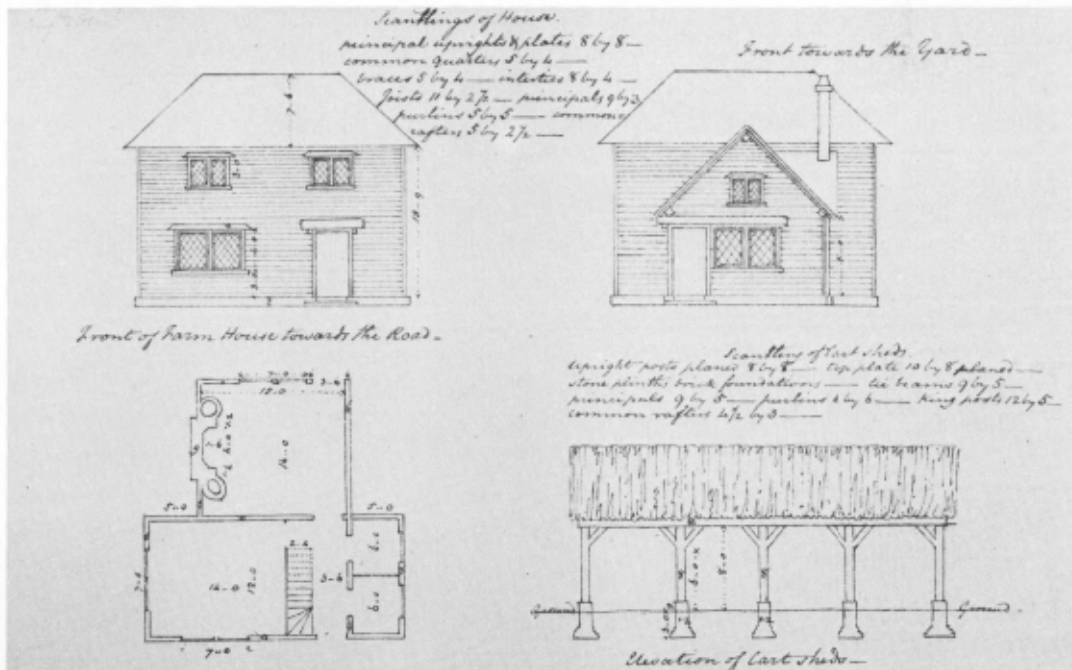 Scantlings of House.
principal uprights & plates 8 by 8 —
common quarters 5 by 4 —
braces 5 by 4 — interties 8 by 4 —
Joists 11 by 2½ — principals 9 by 3
purlins 5 by 5 — common
rafters 5 by 2½ —
Front towards the Yard —
7 - 6
3-0
18 - 9
Front of Farm House towards the Road —
Scantling of Cart sheds.
upright posts planed 8 by 8 — top plate 10 by 8 planed —
stone plinths brick foundations — tie beams 9 by 5 —
principals 9 by 5 — purlins 6 by 6 — king posts 12 by 5
common rafters 4½ by 3 —
7-0
3-6
15-0
14-0
5-0
5-0
2-6
3-6
14-0
12-0
6-0
7-0
8-0
Ground
Ground.
Elevation of Cart sheds —